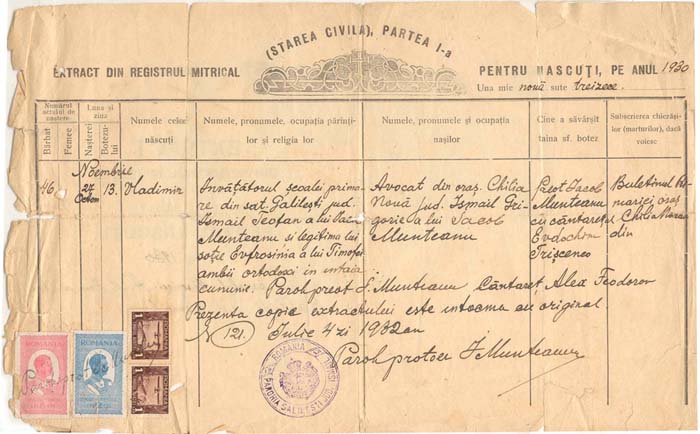 (STAREA CIVILA), PARTEA I-a
EXTRACT DIN REGISTRUL MITRICAL
PENTRU NASCUȚI, PE ANUL 1930
Una mie nouă sute treizece.
Numărul actului de naștere
Bărbat
Femee
Luna și ziua
Nașterei
Botezului
Numele celor născuți
Numele, pronumele, ocupația părinților și religia lor
Numele, pronumele și ocupația nașilor
Cine a săvârșit taina sf. botez
Subscrierea chiezășilor (marturilor), dacă voiesc
46
Noembrie
27 Octom
13.
Vladimir
Invățătorul școalei primare din sat. Galilești jud.
Ismail Teofan a lui
Munteanu si legitima lui
soție Evfrosinia a lui Timofei
ambii ortodoxi in intaia
cununie.
Avocat din oraș. Chilia
Nouă jud. Ismail Grigorie a lui Iacob
Munteanu
Preot Iacob
Munteanu
cu cântarețul
Evdochim
Trișcenco
Buletinul Primariei oraș
Chilia Noua
din
Paroh preot I. Munteanu Cântareț, Alex Feodorov
Prezenta copie extractului este intocma cu original
N 121.
Iulie 4 zi 1932 an
Paroh protoer I Munteanu
ROMANIA
ROMANIA
1
1
ROMANIA
PAROHIA GALILESTI JUD.